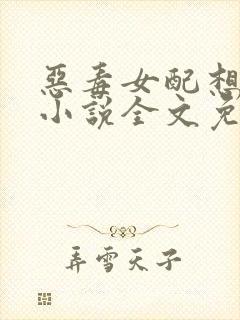 惡毒女配想
小說全文免
弄雪天子